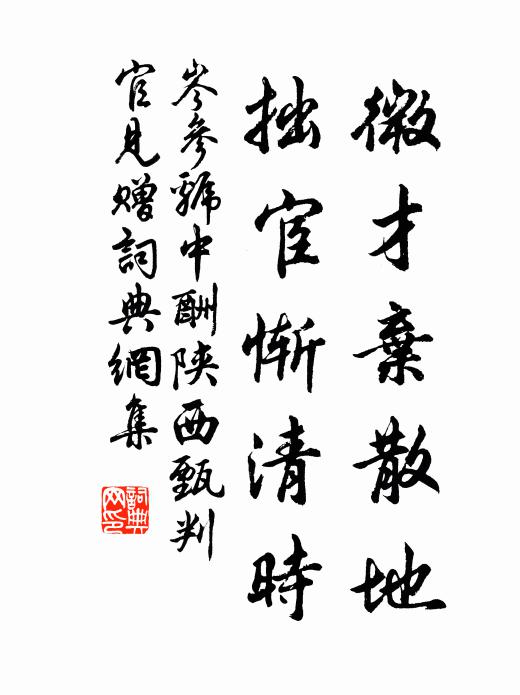 微才棄散地
拙宦慚清時
岑參虢中酬陝西甄判
官見贈詞典網集
詞典
网印